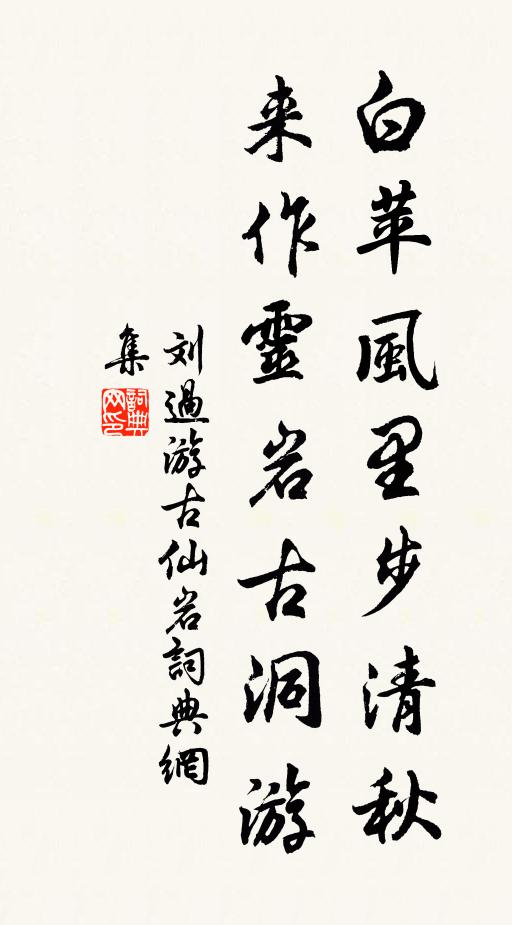 白苹風里步清秋
来作靈岩古洞游
刘過游古仙岩詞典網
集
詞典
网印